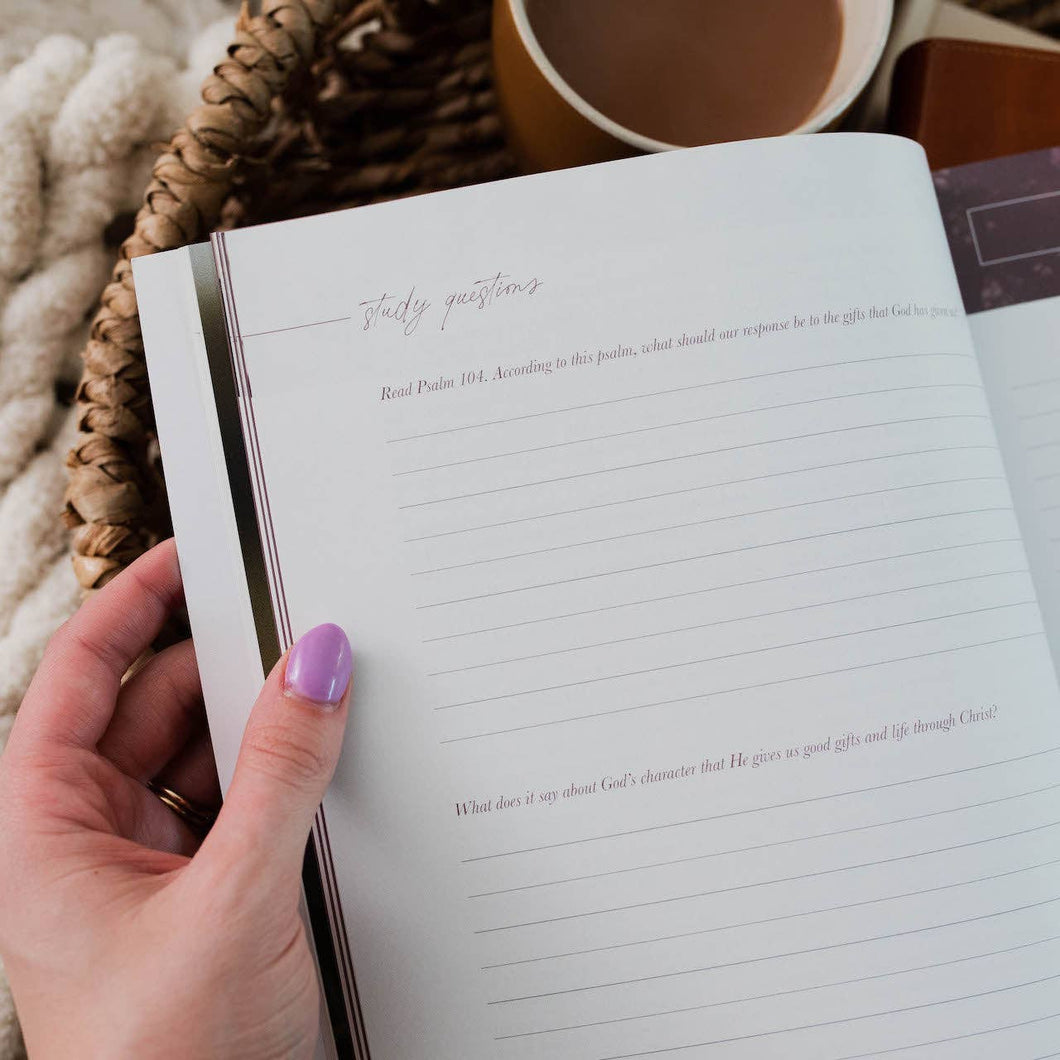 study questions
Read Psalm 104. According to this psalm, what should our response be to the gifts that God has given us?
What does it say about God's character that He gives us good gifts and life through Christ?